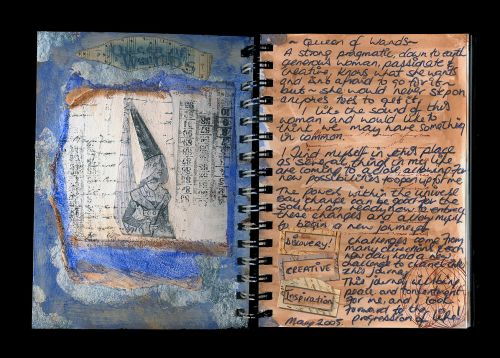 Queen of
Wands
~ Queen of Wands ~
A strong pragmatic, down to earth
generous woman, passionate &
creative, knows what she wants
and isnt afraid to go for it ~
but ~ she would never step on
anyones toes to get it,
I like the sound of this
woman and would like to
think we may have something
in common.
I find myself in this place
as several things in my life
are coming to a close, allowing for
new possibilities to open up to me
The power within the universe
say change can be good for the
soul. I am ready now to embrace
these changes and allow myself
to begin a new journey.
DISCOVERY!
CREATIVE
Inspiration
challenges come from
many directions, each
new day holds a new
challenge to channel
this journey
This journey will bring
peace and contentment
for me, and I look
forward to the
progression of life!
May 2005.